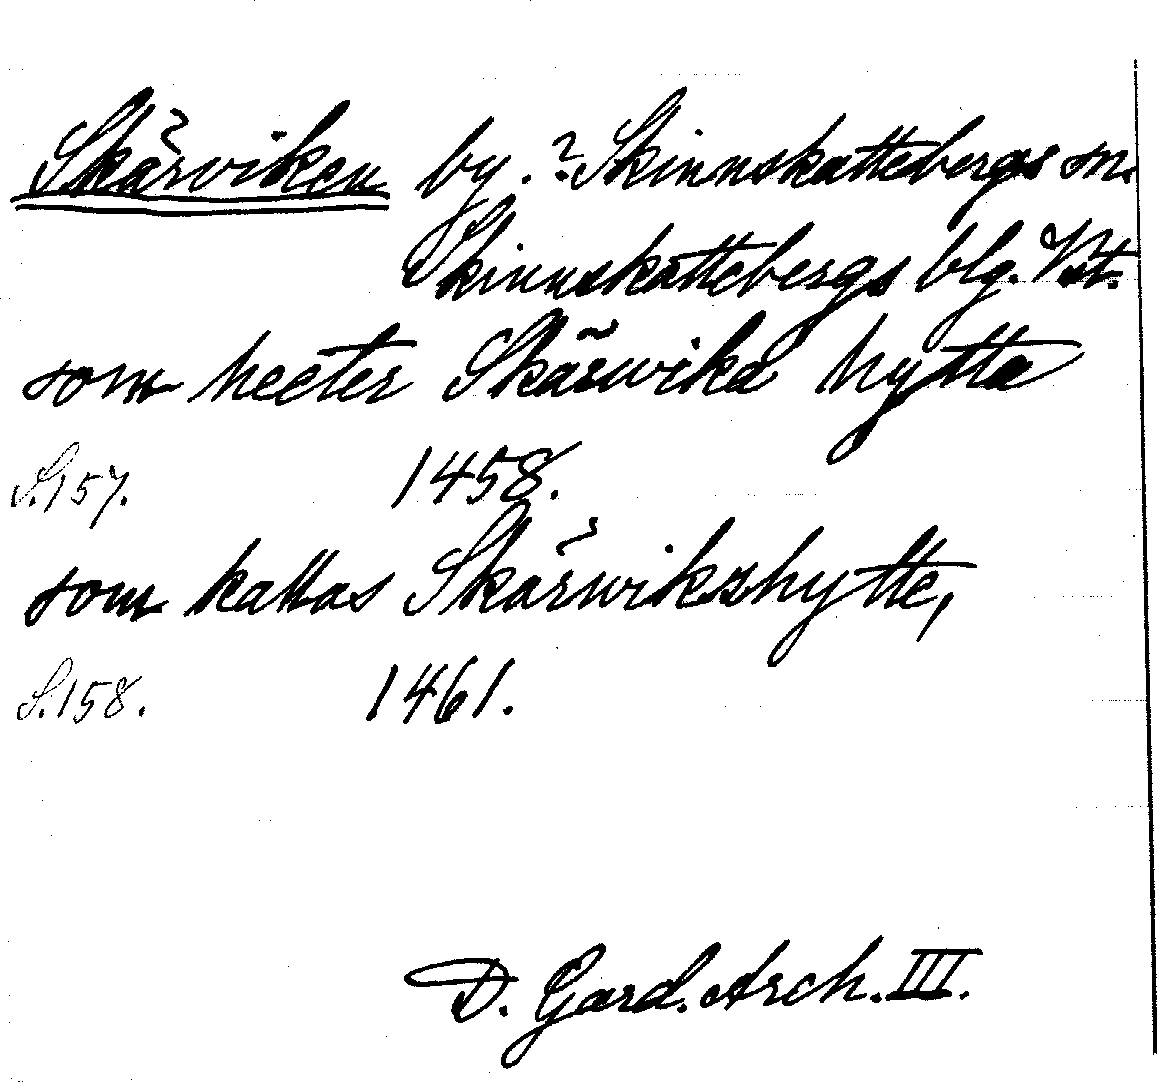 Skärviken by. ? Skinnskattebergs sn.
Skinnskattebergs blg. Vst.
som heeter Skärwika hytta
S. 157. 1458.
som kallas Skärwikshytte,
S. 158. 1461.
D. Gard. Arch. III.